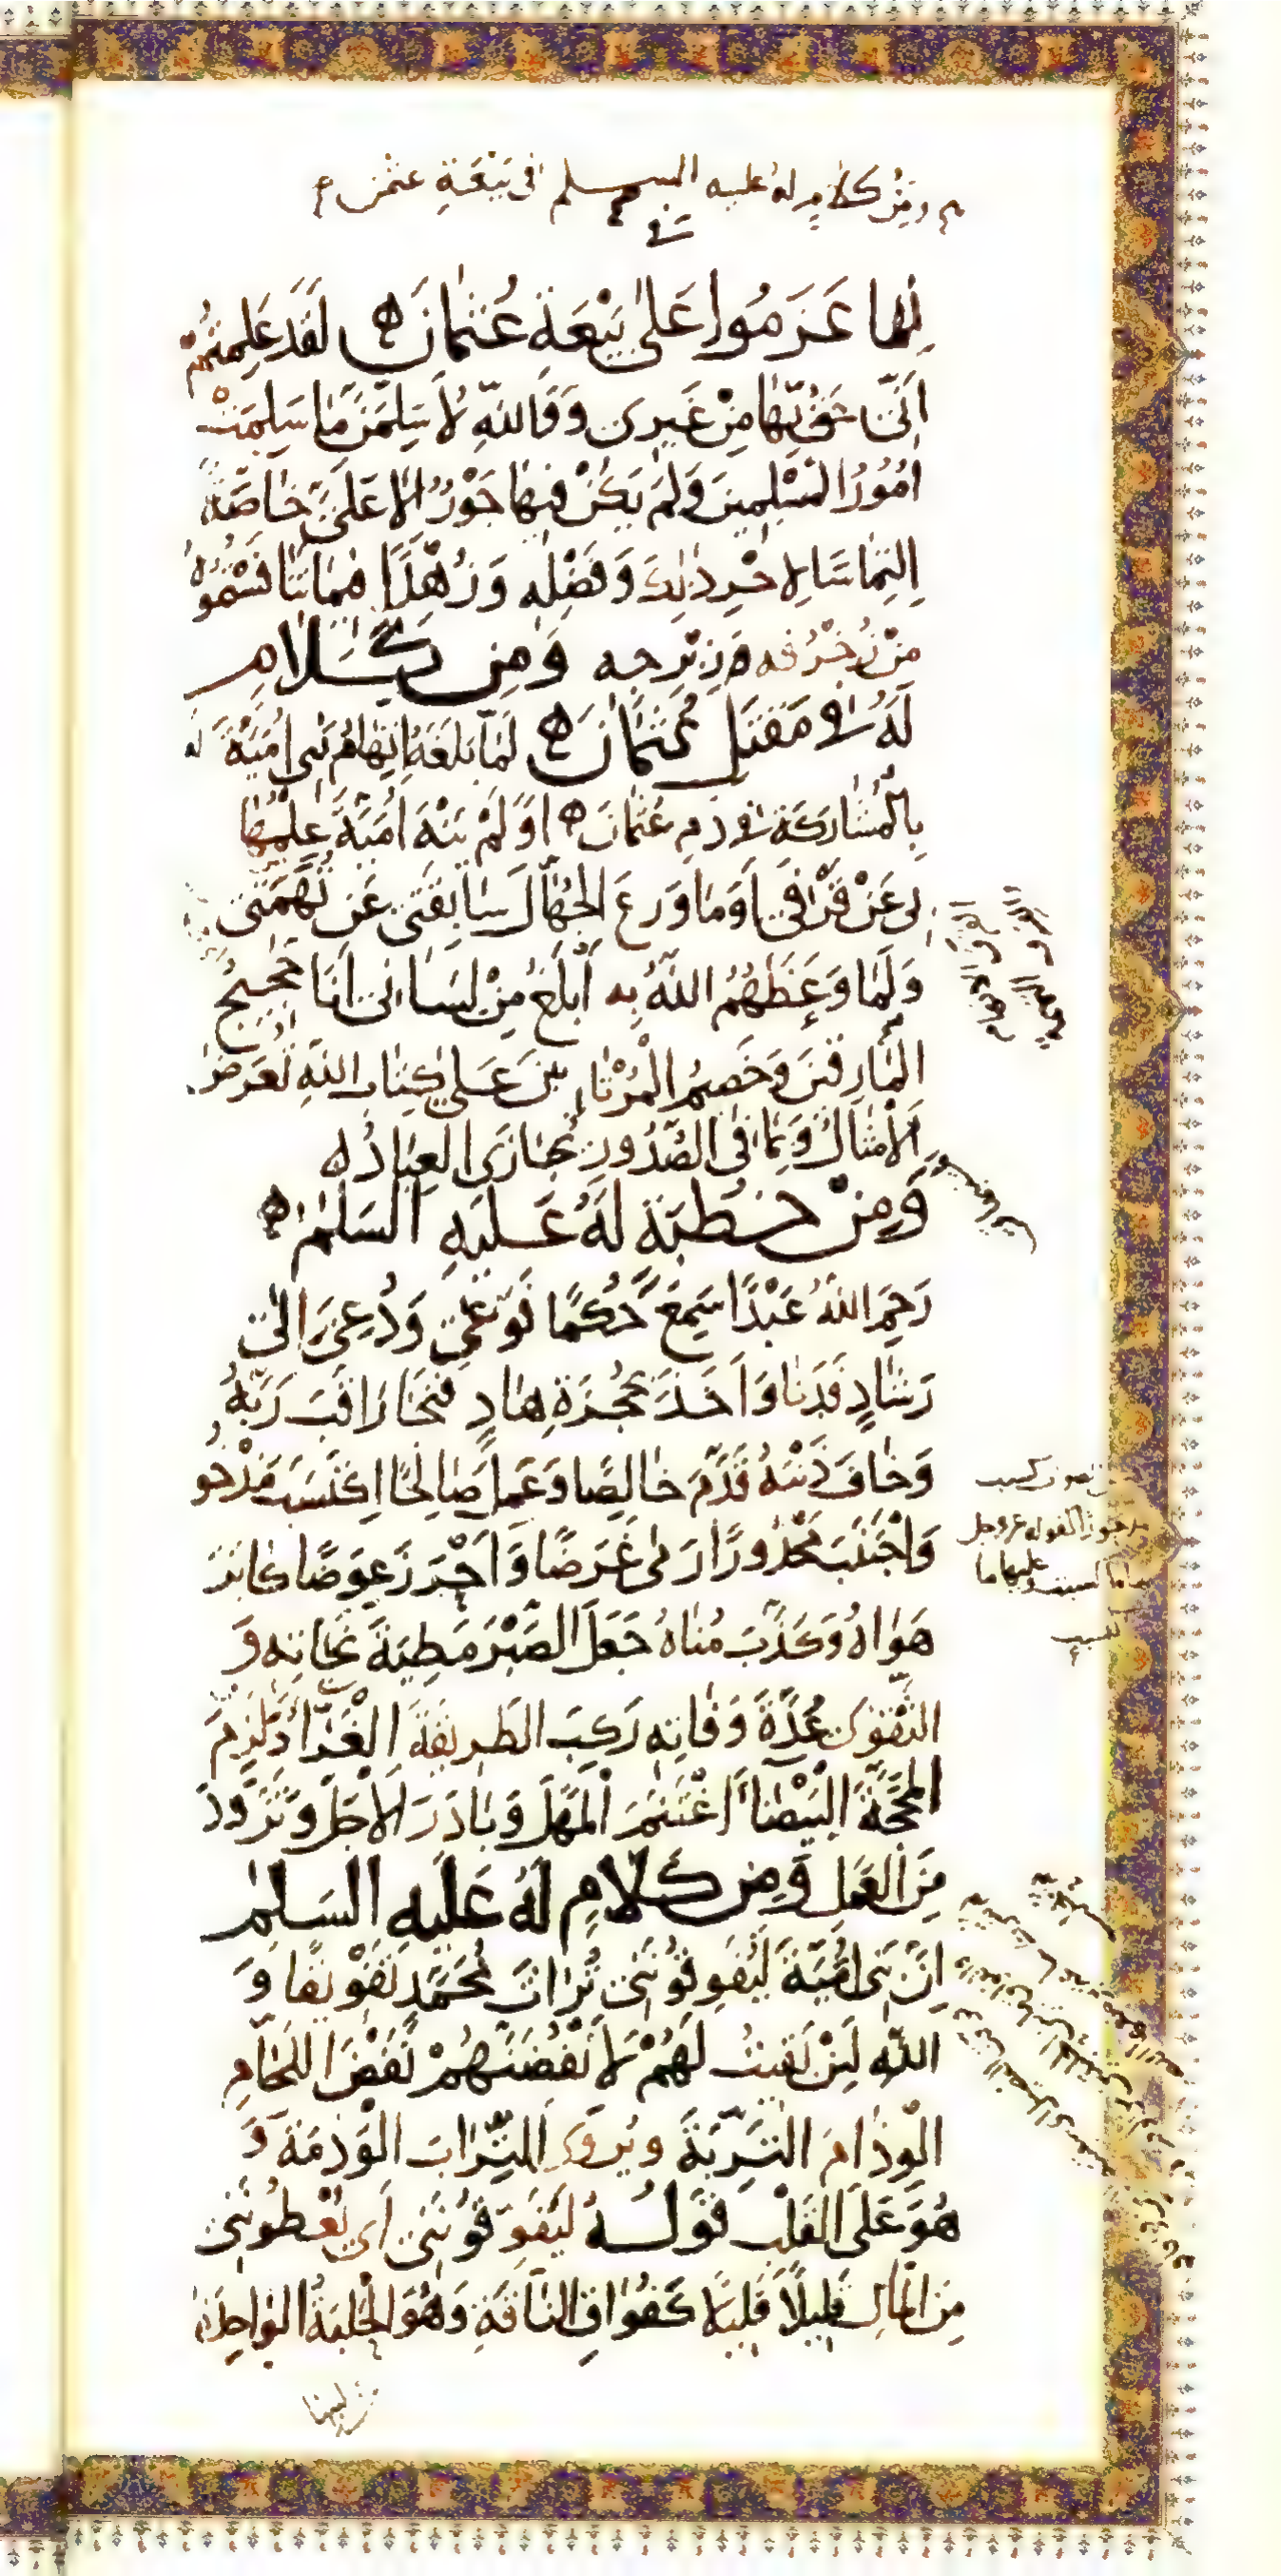 ومن كلام له عليه السلم في بيعة عثمن
لما عَزَمُوا عَلى بَيْعَةِ عُثمانَ لَقَد عَلِمتُم
اَنّى اَحَقُّ بِهٰا مِنْ غَيرى وَ وَاللهِ لَاُسَلِّمَنَّ مٰا سَلِمَتْ
اُمُورُ المُسْلِمينَ وَلَم يَكُنْ فيهٰا جَوْرٌ اِلّا عَلَىَّ خٰاصَّةً
اِلتِماسًا لِاَجْرِ ذٰلِكَ وَفَضْلِهِ وَزُهْدًا فيمٰا تَنٰافَسْتُمُوهُ
مِنْ زُخْرُفِه وَزِبْرِجِه وَمِن كَلامٍ
لَهُ فى مَقتَلِ عُثمانَ لَمّا بَلَغَهُ اتِّهامُ بَنى اُمَيَّةَ لَهُ
بِالمُشارَكَةِ فى دَمِ عُثمانَ اَوَلَمْ يَنْهَ اُمَيَّةَ عِلْمُهٰا
بى عَنْ قَرْفى اَوَمٰا وَزَعَ الجُهّالَ سٰابِقَتى عَن تُهَمَتى
وَلَمٰا وَعَظَهُمُ اللهُ بِه اَبْلَغُ مِنْ لِسٰانى اَنَا حَجيجُ
المٰارِقينَ وَخَصيمُ الْمُرْتابينَ عَلى كِتٰابِ اللهِ تُعرَضُ
الْاَمْثالُ وَبِمٰا فى الصُّدُورِ تُجٰازَى العِبٰادُ
وَمِنْ خُطبَةٍ لَهُ عَلَيهِ السَلٰم
رَحِمَ اللهُ عَبْدًا سَمِعَ حُكمًا فَوَعٰى وَدُعِىَ اِلٰى
رَشٰادٍ فَدَنٰا وَاَخَذَ بِحُجزَةِ هٰادٍ فَنَجٰا رٰاقَبَ رَبَّهُ
وَخٰافَ ذَنْبَهُ قَدَّمَ خٰالِصًا وَعَمِلَ صٰالِحًا اِكتَسَبَ مَذْخُو
رًا وَاجْتَنَبَ مَحْذُورًا رَمٰى غَرَضًا وَاَحْرَزَ عِوَضًا كٰابَرَ
هَوٰاهُ وَكَذَّبَ مُنٰاهُ جَعَلَ الصَبْرَ مَطِيَّةَ نَجٰاتِه وَ
التَّقوىٰ عُدَّةَ وَفٰاتِه رَكِبَ الطَريقَةَ الْغَرّاءَ وَلَزِمَ
المَحَجَّةَ البَيْضٰاءَ اغْتَنَمَ الْمَهَلَ وَبٰادَرَ الاَجَلَ وَتَزَوَّدَ
مِنَ العَمَلِ وَمِن كَلامٍ لَهُ عَلَيهِ السَلٰم
اِنَّ بَنى اُمَيَّةَ لَيُفَوِّقُونَنى تُرٰاثَ مُحَمَّدٍ تَفْويقًا وَ
اللهِ لَئِنْ بَقيتُ لَهُمْ لَاَنْفُضَنَّهُمْ نَفْضَ اللَحّامِ
الْوِذامَ التَّرِبَةَ ويُروىٰ التُّرابَ الْوَذِمَةَ وَ
هُوَ عَلَى القَلْبِ قَولُهُ لَيُفَوِّقُونَنى اَى يُعْطُونَنى
مِنَ المالِ قليلًا قليلًا كَفُوٰاقِ النّاقَةِ وَهُوَ الحَلبَةُ الوٰاحِدَةُ
من لبنها